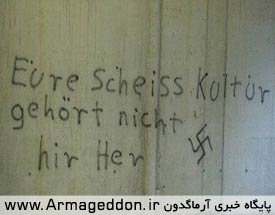 Eure Scheiss Kultur
gehört nicht
hir Her
پایگاه خبری آرماگدون www.Armageddon.ir